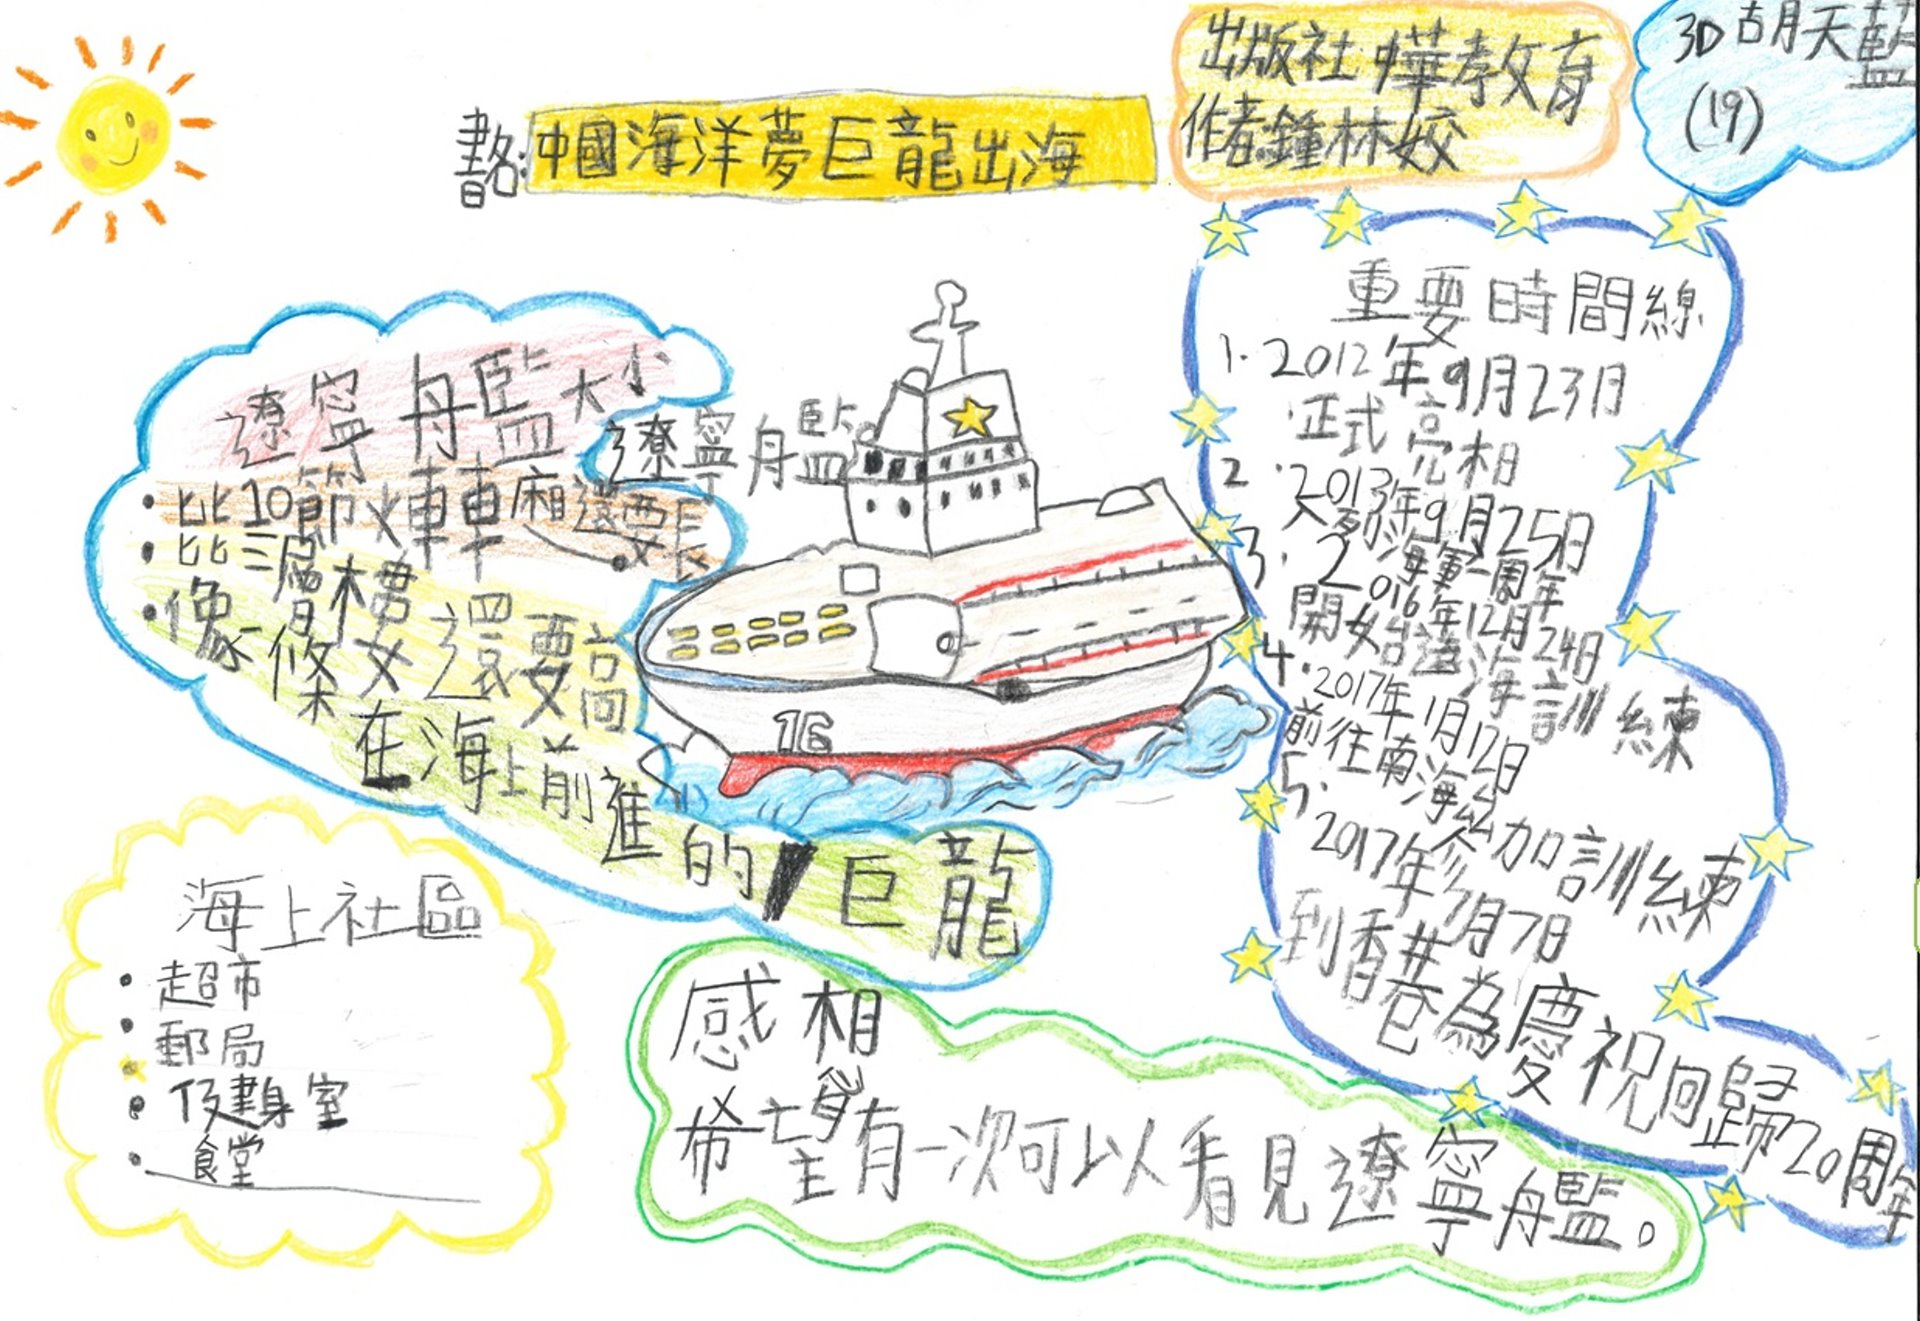 書名:中國海洋夢巨龍出海
出版社:中華教育
作者鍾林姣
3D胡天藍
(19)
遼寧舟監大小
• 比10節火車車廂還要長
• 比三層樓還要高
• 像一條在海上前進的巨龍
遼寧舟監
16
重要時間線
1. 2012年9月23日
正式亮相
2. 2013年9月25日
入列海軍一周年
3. 2016年12月24日
開始遠海訓練
4. 2017年1月12日
前往南海參加訓練
5. 2017年7月7日
到香港為慶祝回歸20周年
海上社區
• 超市
• 郵局
• 健身室
• 食堂
感相
希望有一次可以看見遼寧舟監。